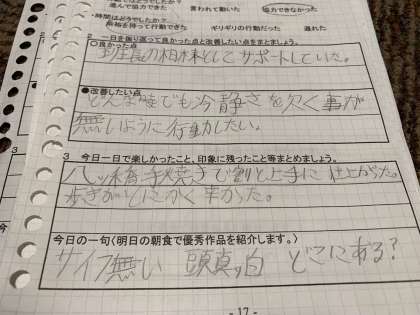 ・時間はどうでしたか？
進んで協力できた 言われて動いた 協力できなかった
余裕を持って行動できた ギリギリの行動だった 遅れた
2 一日を振り返って良かった点と改善したい点をまとめましょう。
○良かった点
班長の相棒としてサポートしていた。
●改善したい点
どんな時でも冷静さを欠く事が
無いように行動したい。
3 今日一日で楽しかったこと、印象に残ったこと等まとめましょう。
八ッ橋手焼きで割と上手に仕上がった。
歩きがとにかく辛かった。
今日の一句（明日の朝食で優秀作品を紹介します。）
サイフ無い 頭真っ白 どこにある？
- 17 -